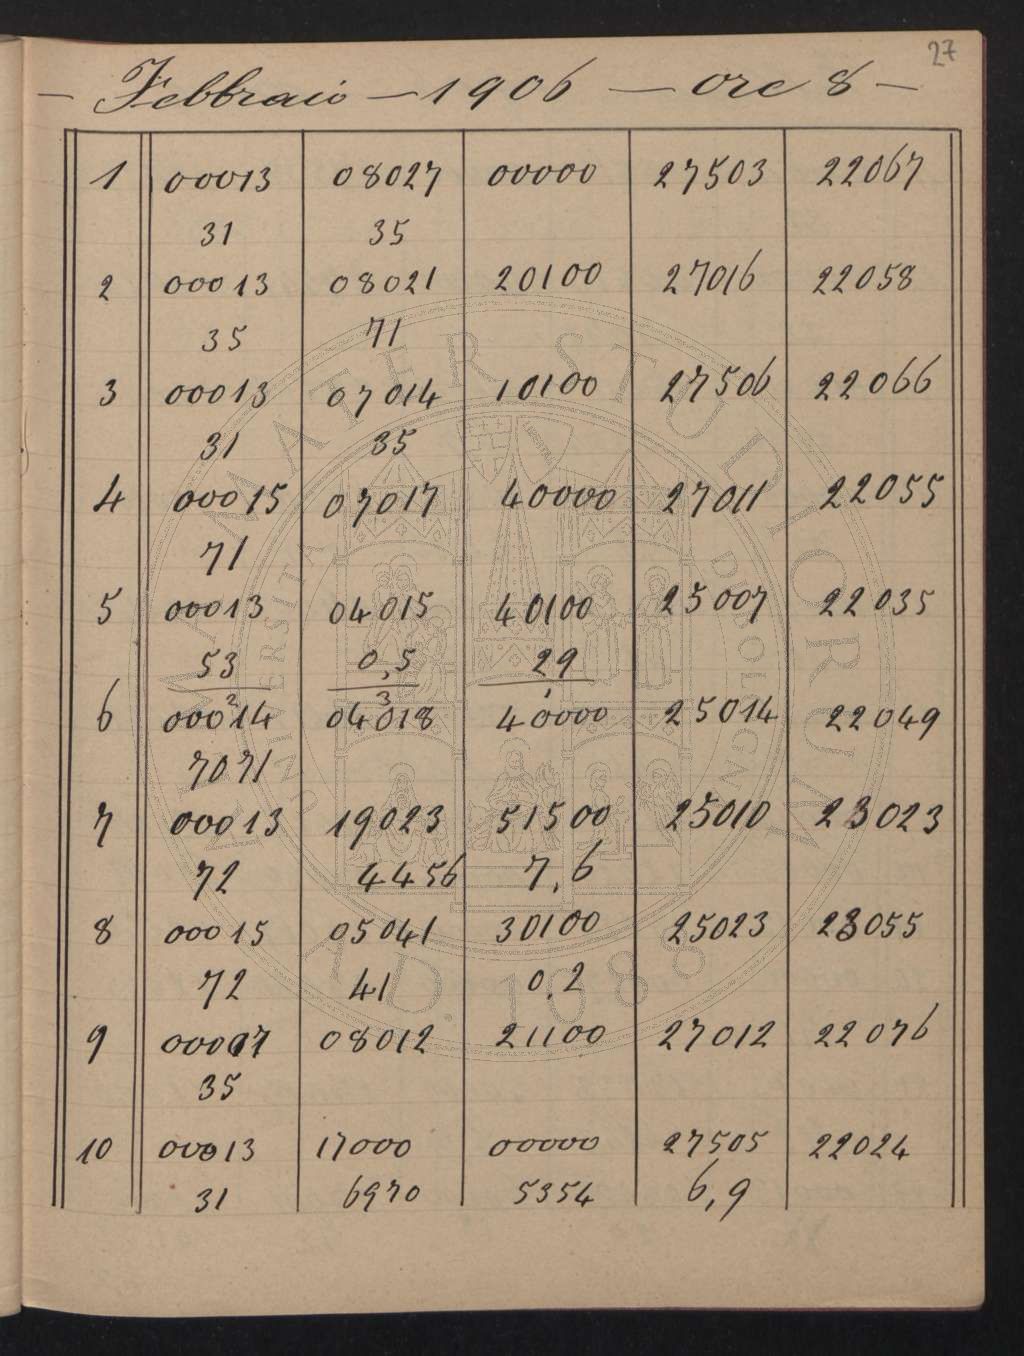 27
— Febbraio — 1906 — ore 8 —
1 00013 08027 00000 27503 22067
31 35
2 00013 08021 20100 27016 22058
35 71
3 00013 07014 10100 27506 22066
31 35
4 00015 07017 40000 27011 22055
71
5 00013 04015 40100 25007 22035
53 0,5 29
6 00014 04018 40000 25014 22049
7071
7 00013 19023 51500 25010 23023
72 4456 7,6
8 00015 05041 30100 25023 23055
72 41 0,2
9 00007 08012 21100 27012 22076
35
10 00013 17000 00000 27505 22024
31 6970 5354 6,9
ALMA MATER STUDIORUM
UNIVERSITÀ DI BOLOGNA
A.D. 1088